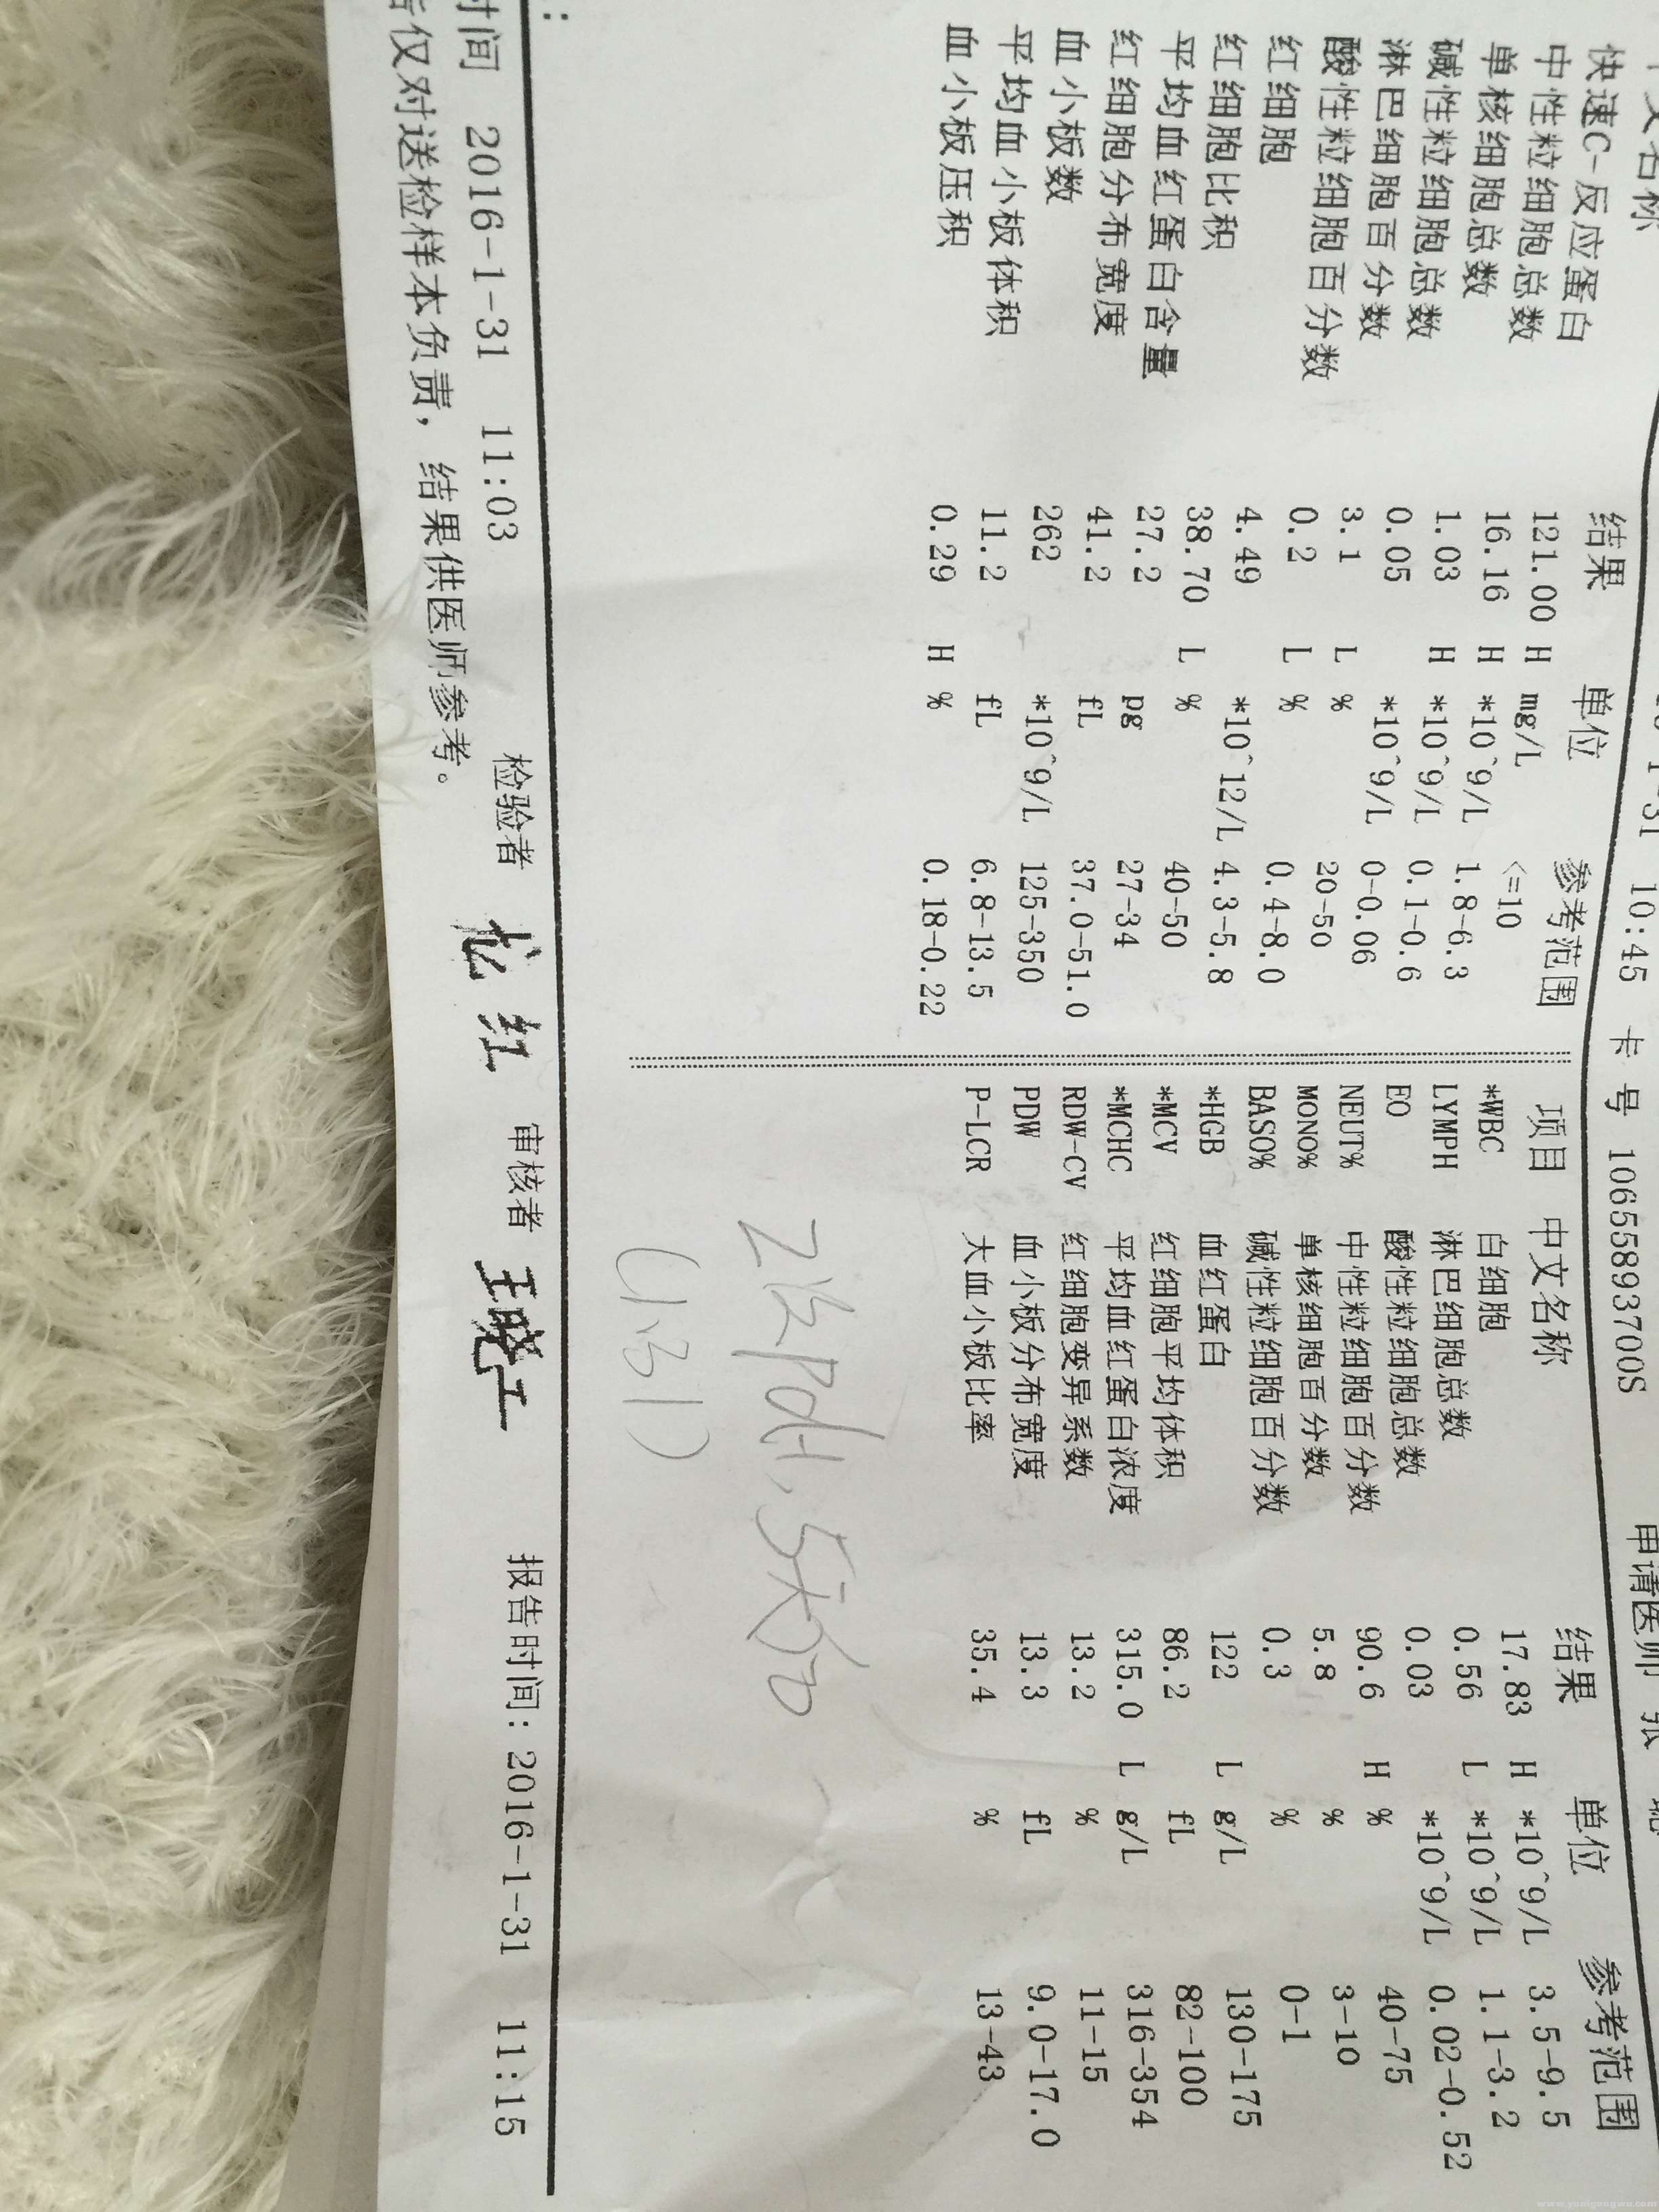 1-31 10:45 卡 号 10655893700S 申请医师 张
文名称 结果 单位 参考范围 项目 中文名称 结果 单位 参考范围
快速C-反应蛋白 121.00 H mg/L <=10 *WBC 白细胞 17.83 H *10^9/L 3.5-9.5
中性粒细胞总数 16.16 H *10^9/L 1.8-6.3 LYMPH 淋巴细胞总数 0.56 L *10^9/L 1.1-3.2
单核细胞总数 1.03 H *10^9/L 0.1-0.6 EO 酸性粒细胞总数 0.03 *10^9/L 0.02-0.52
碱性粒细胞总数 0.05 *10^9/L 0-0.06 NEUT% 中性粒细胞百分数 90.6 H % 40-75
淋巴细胞百分数 3.1 L % 20-50 MONO% 单核细胞百分数 5.8 % 3-10
酸性粒细胞百分数 0.2 L % 0.4-8.0 BASO% 碱性粒细胞百分数 0.3 % 0-1
红细胞 4.49 *10^12/L 4.3-5.8 *HGB 血红蛋白 122 L g/L 130-175
红细胞比积 38.70 L % 40-50 *MCV 红细胞平均体积 86.2 fL 82-100
平均血红蛋白含量 27.2 pg 27-34 *MCHC 平均血红蛋白浓度 315.0 L g/L 316-354
红细胞分布宽度 41.2 fL 37.0-51.0 RDW-CV 红细胞变异系数 13.2 % 11-15
血小板数 262 *10^9/L 125-350 PDW 血小板分布宽度 13.3 fL 9.0-17.0
平均血小板体积 11.2 fL 6.8-13.5 P-LCR 大血小板比率 35.4 % 13-43
血小板压积 0.29 H % 0.18-0.22
(1.31)
:
时间 2016-1-31 11:03 检验者 审核者 王晓 报告时间: 2016-1-31 11:15
告仅对送检样本负责, 结果供医师参考。